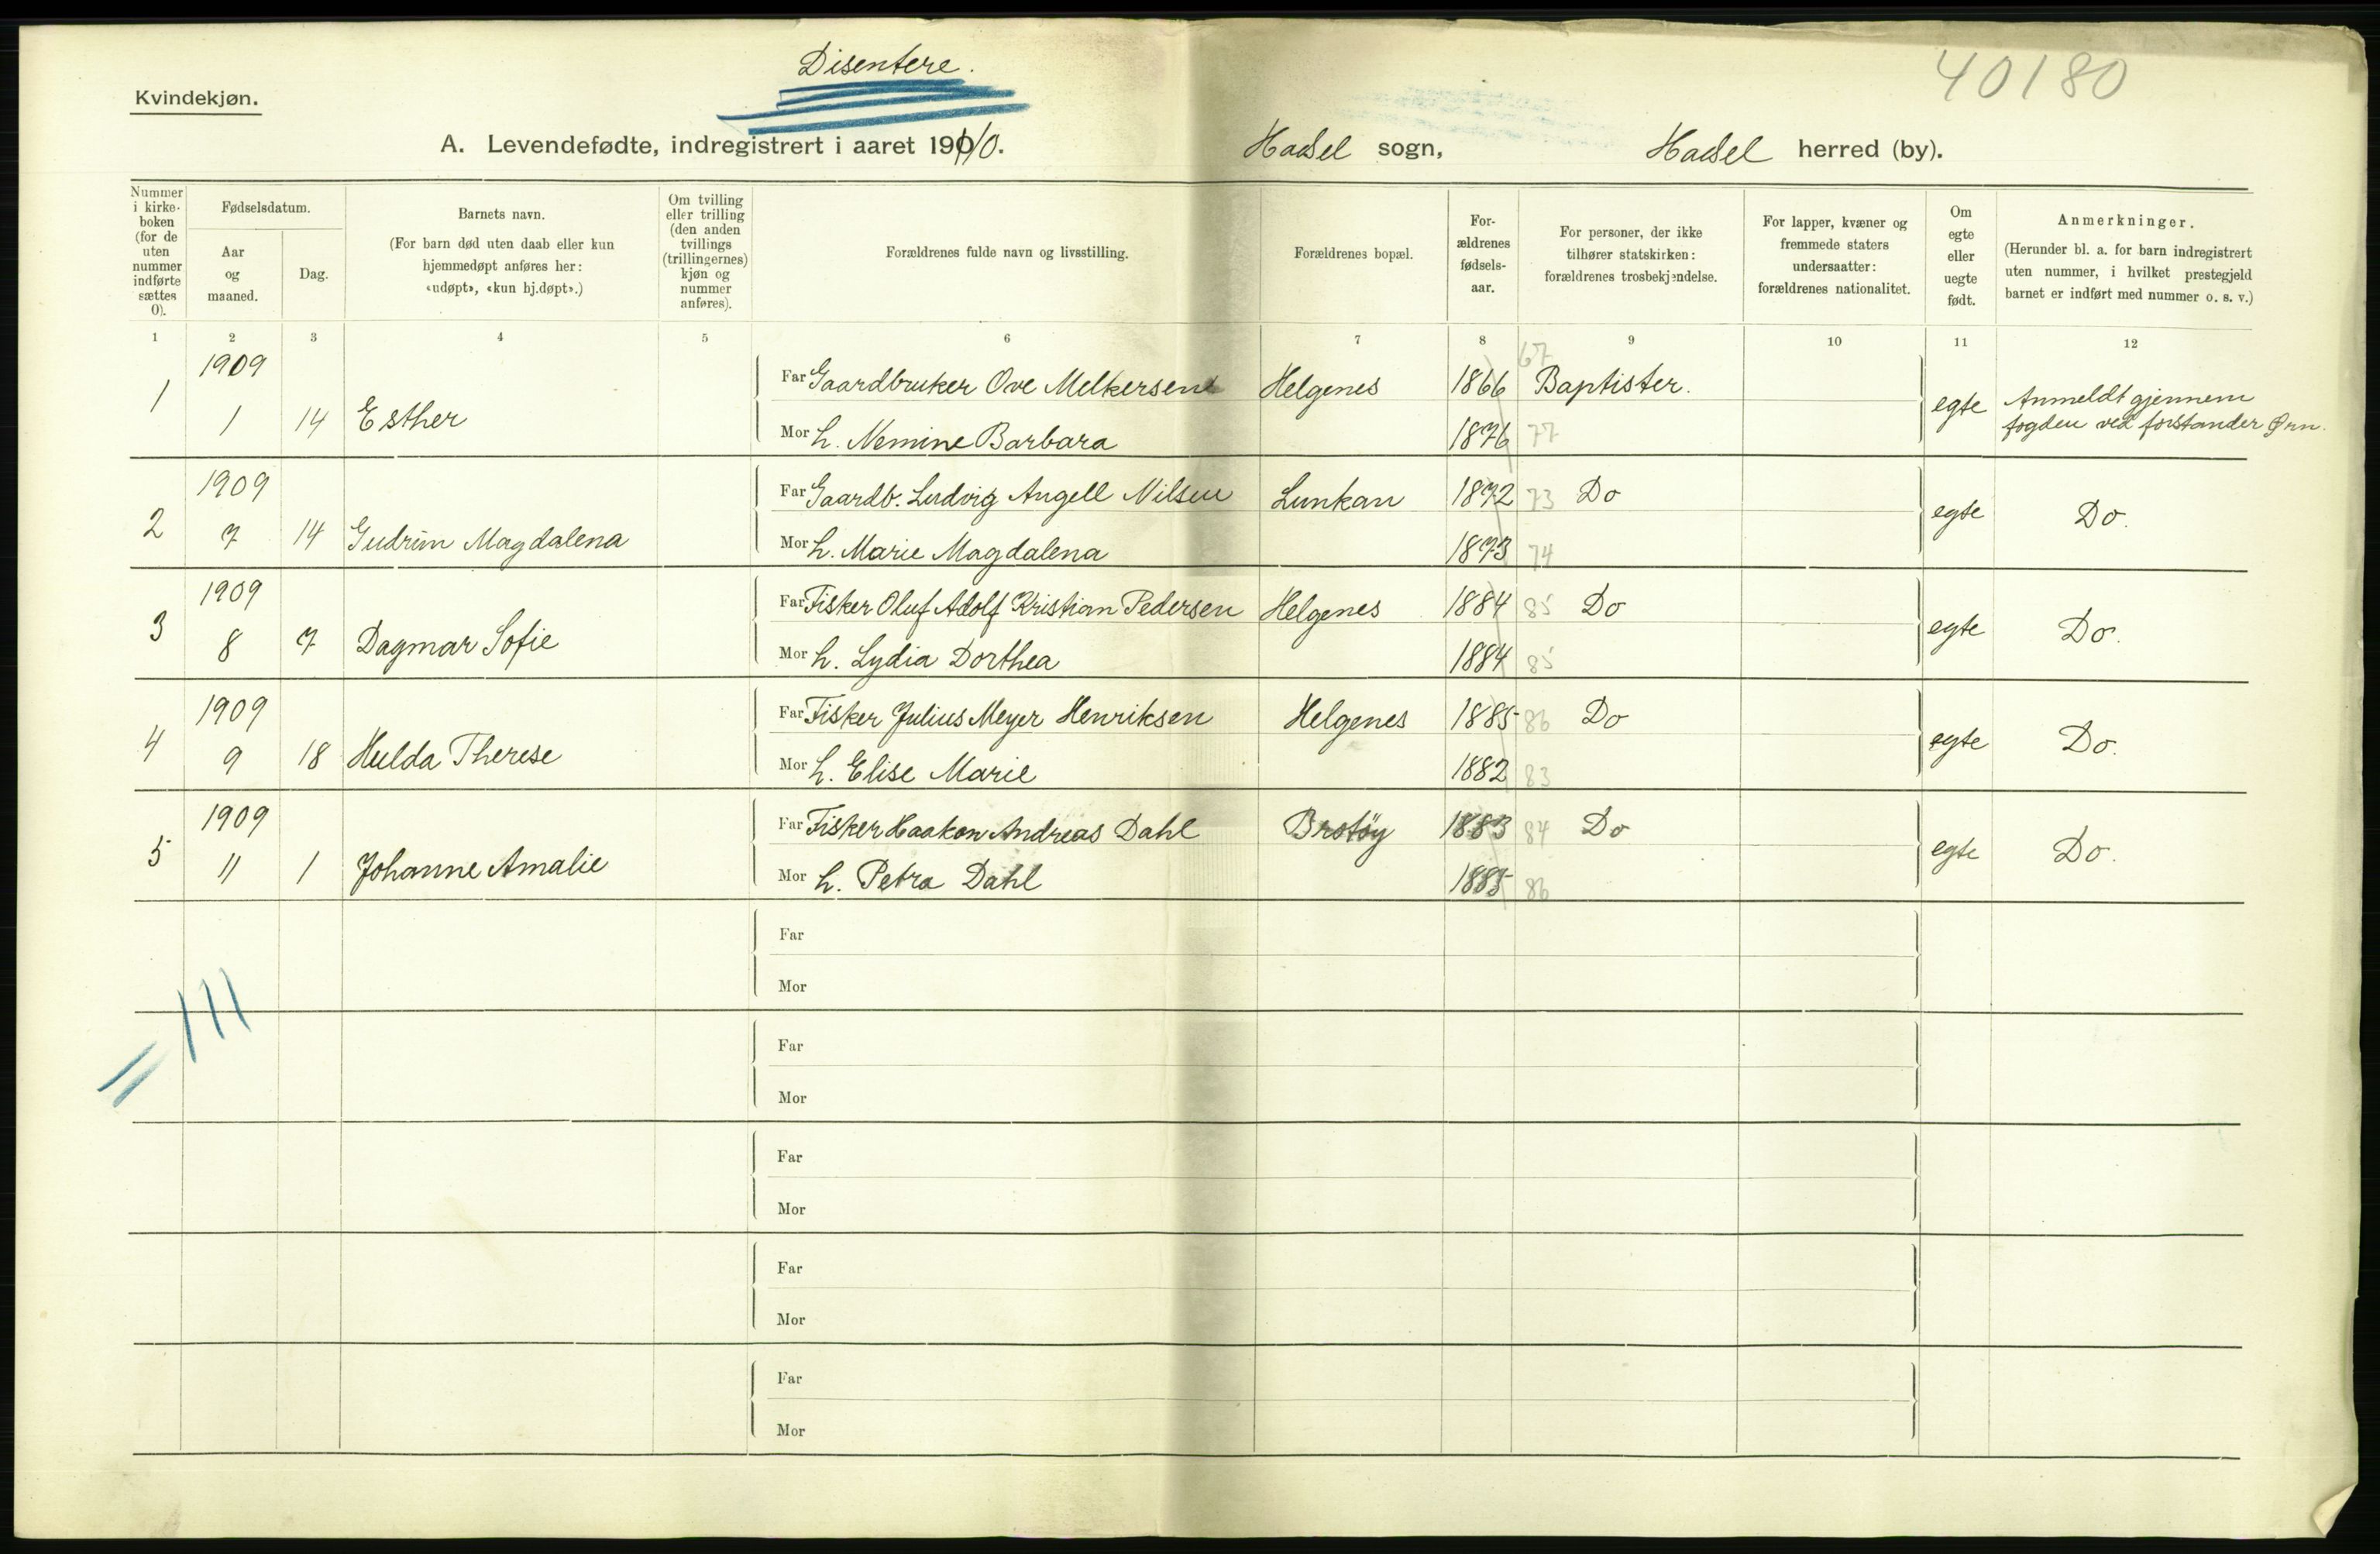 Disentere.
40180
Kvindekjøn.
A. Levendefødte, indregistrert i aaret 1910.
Hadsel sogn,
Hadsel herred (by).
Nummer i kirkeboken (for de uten nummer indførte sættes 0).
Fødselsdatum.
Aar og maaned.
Dag.
Barnets navn.
(For barn død uten daab eller kun hjemmedøpt anføres her: «udøpt», «kun hj.døpt».)
Om tvilling eller trilling (den anden tvillings (trillingernes) kjøn og nummer anføres).
Forældrenes fulde navn og livsstilling.
Forældrenes bopæl.
Forældrenes fødselsaar.
For personer, der ikke tilhører statskirken: forældrenes trosbekjendelse.
For lapper, kvæner og fremmede staters undersaatter: forældrenes nationalitet.
Om egte eller uegte født.
Anmerkninger.
(Herunder bl. a. for barn indregistrert uten nummer, i hvilket prestegjeld barnet er indført med nummer o. s. v.)
1 2 3 4 5 6 7 8 9 10 11 12
1 1909 1 14 Esther
Far Gaardbruker Ove Melkersen Helgenes 1866 67 Baptister.
Mor h. Nemine Barbara 1876 77
egte Anmeldt gjennem
fogden ved forstander Ørn.
2 1909 7 14 Gudrun Magdalena
Far Gaardb. Ludvig Angell Nilsen Lunkan 1872 73 Do
Mor h. Marie Magdalena 1873 74
egte Do.
3 1909 8 7 Dagmar Sofie
Far Fisker Oluf Adolf Kristian Pedersen Helgenes 1884 85 Do
Mor h. Lydia Dorthea 1884 85
egte Do.
4 1909 9 18 Hulda Therese
Far Fisker Julius Meyer Henriksen Helgenes 1885 86 Do
Mor h. Elise Marie 1882 83
egte Do.
5 1909 11 1 Johanne Amalie
Far Fisker Haakon Andreas Dahl Brotøy 1883 84 Do
Mor h. Petra Dahl 1885 86
egte Do.
Far
Mor
Far
Mor
Far
Mor
Far
Mor
Far
Mor